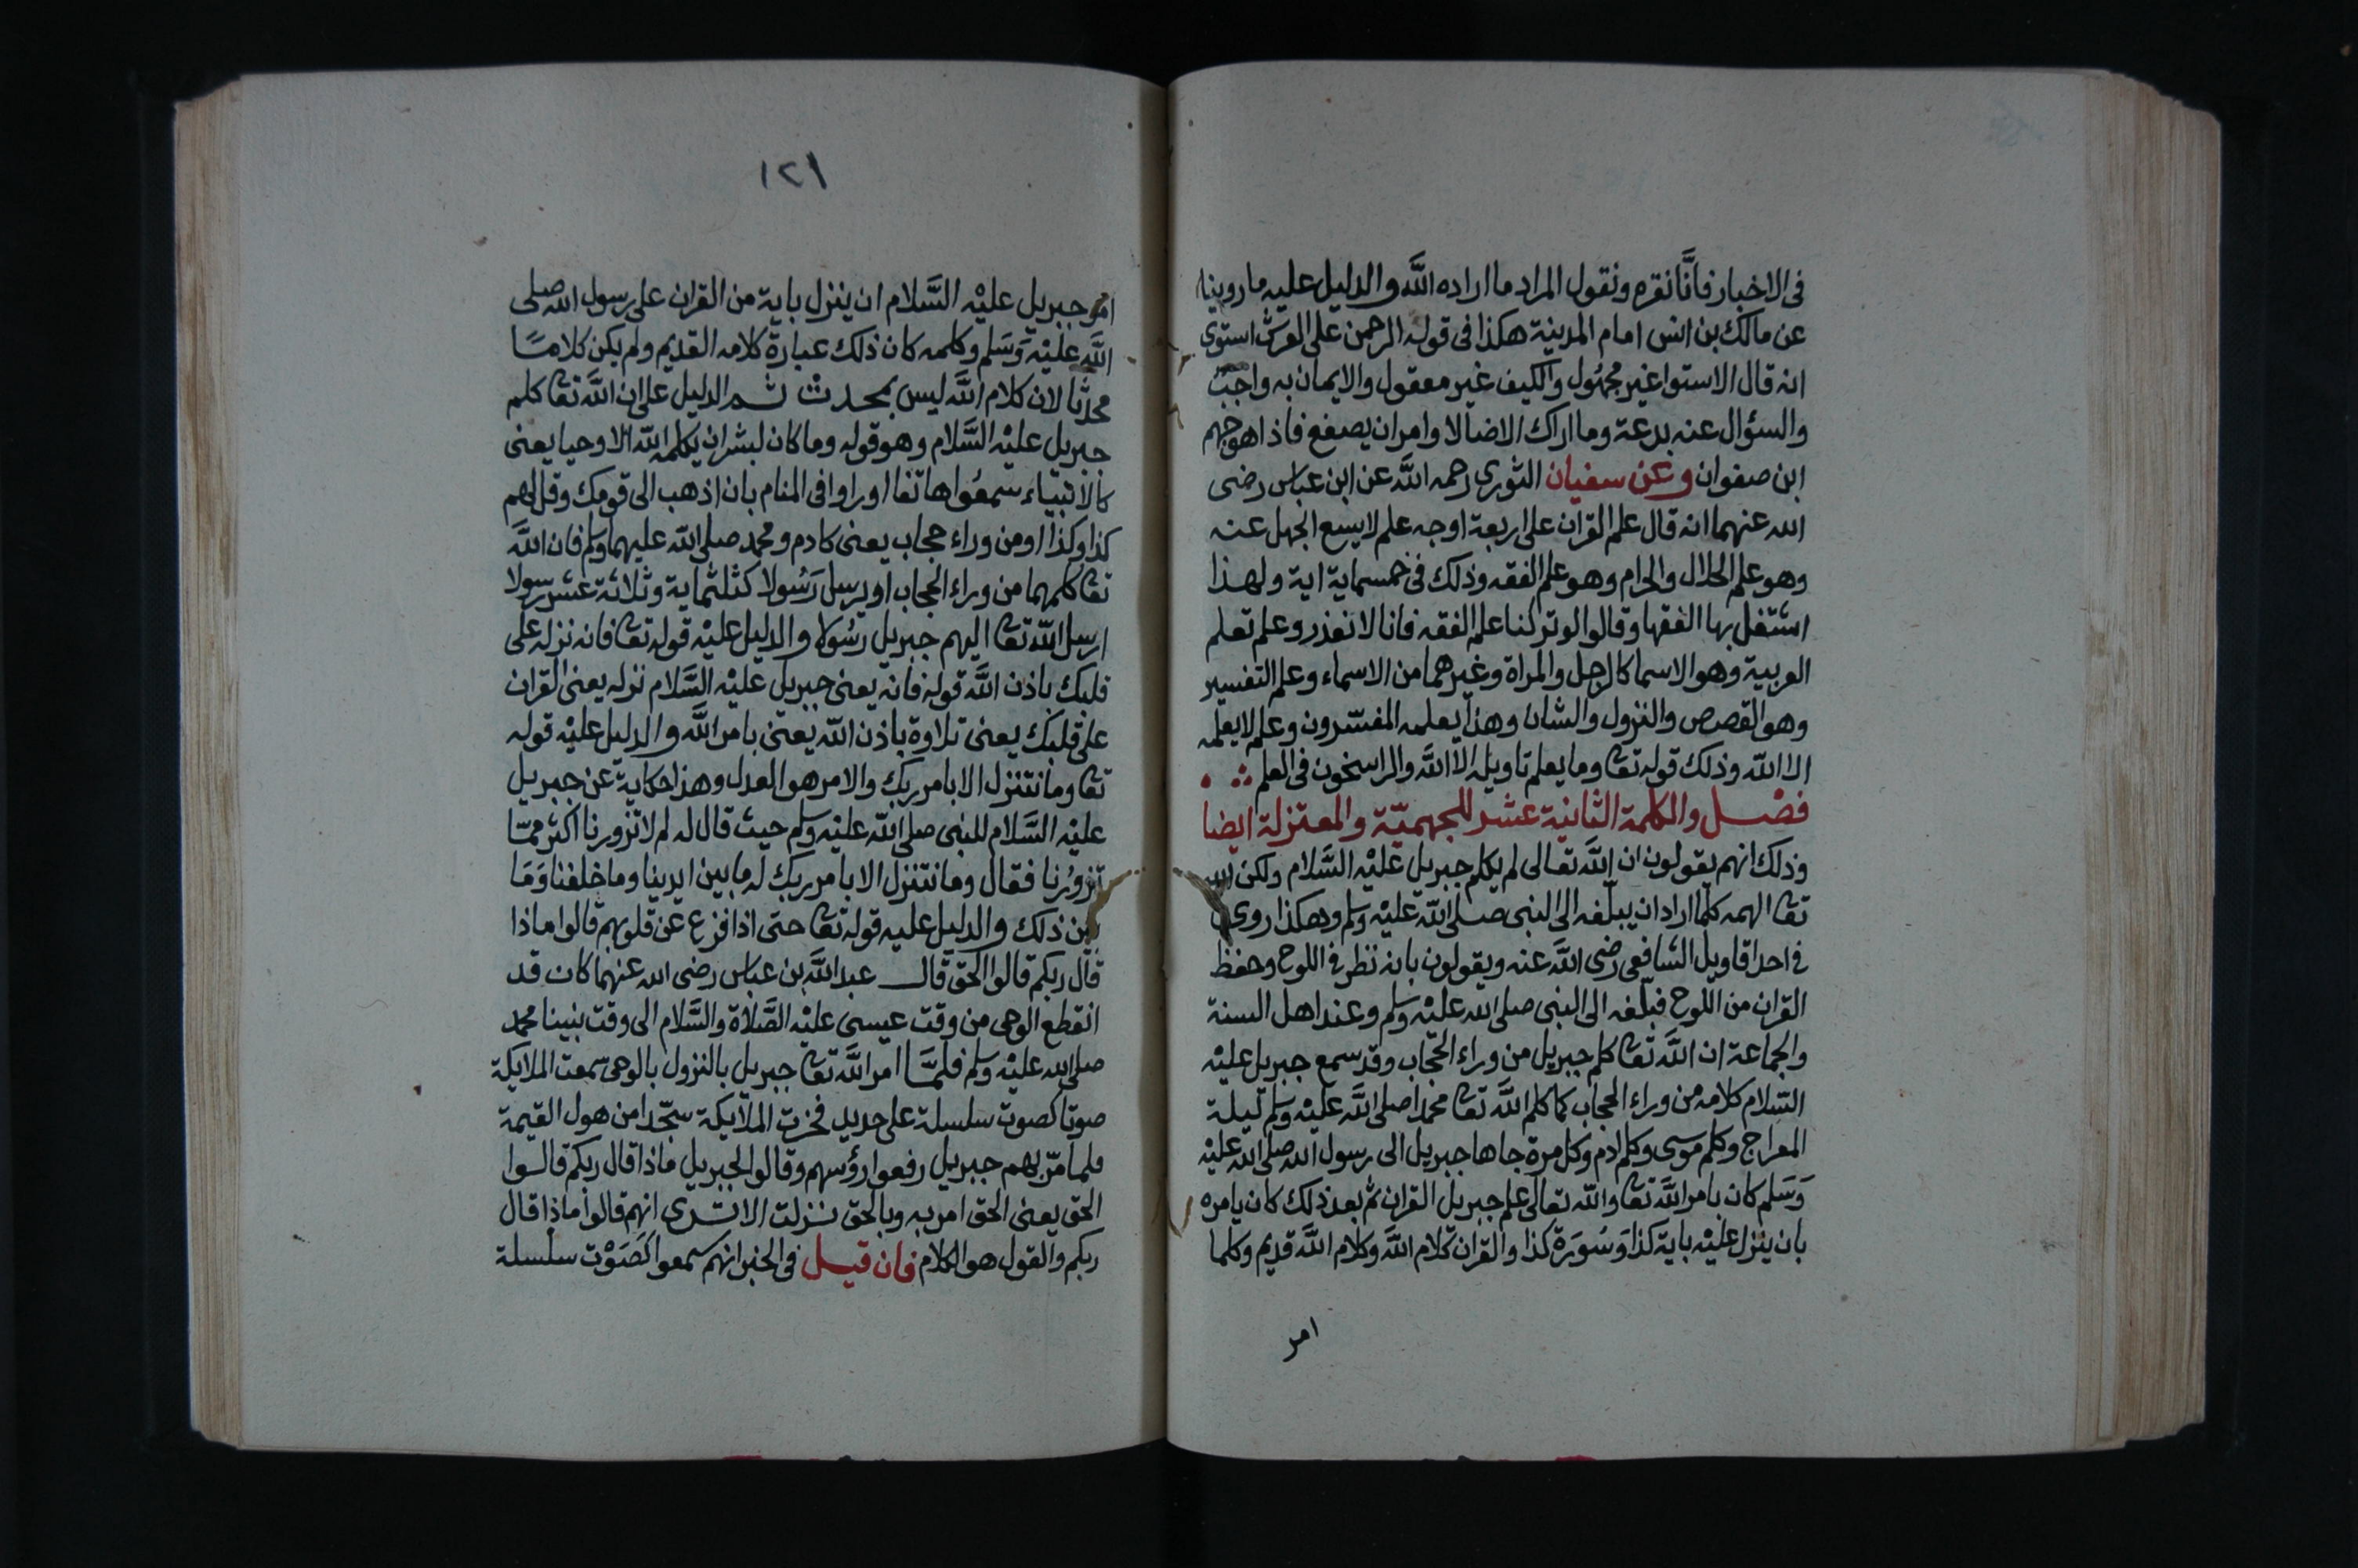 فى الاخبار فانَّا نقره ونقول المراد ما اراده الله والدليل عليه ما روينا
عن مالك بن انس امام المدينة هكذا فى قوله الرحمن على العرش استوى
انه قال الاستوا غير مجهُول والكيف غير معقول والايمان به واجبٌ
والسؤال عنه بدعة وما اراك الا ضالا وامر ان يصفع فاذا هو جهم
ابن صفوان وعن سفيان الثورى رحمه الله عن ابن عباس رضى
الله عنهما انه قال علم القران على اربعة اوجه علم لا يسع الجهل عنه
وهو علم الحلال والحرام وهو علم الفقه وذلك فى خمسماية اية ولهذا
اشتغل بها الفقها وقالوا لو تركنا علم الفقه فانا لا نعذر وعلم تعلم
العربية وهو الاسما كالرجل والمراة وغيرهما من الاسماء وعلم التفسير
وهو القصص والنزول والشان وهذا يعلمه المفسّرون وعلم لا يعلمه
الا الله وذلك قوله تعا وما يعلم تاويله الا الله والراسخون فى العلم
فصْل والكلمة الثانية عشر للجهميّة والمعتزلة ايضا
وذلك انهم يقولون ان الله تعالى لم يكلم جبريل عليْه السَّلام ولكن الله
تعا الهمه كلما اراد ان يبلّغه الى النبى صلى الله عليْه وسلم وهكذا روى
فى احد اقاويل الشافعى رضى الله عنه ويقولون بانه نظر فى اللوح وحفظ
القران من اللوح فبلّغه الى النبى صلى الله عليْه وسلم وعند اهل السنة
والجماعة ان الله تعا كلم جبريل من وراء الحجاب وقد سمع جبريل عليْه
السّلام كلامه من وراء الحجاب كما كلم الله تعا محمدا صلى الله عليْه وسلم ليلة
المعراج وكلم موسى وكلم ادم وكل مرة جاها جبريل الى رسول الله صلى الله عليْه
وَسَلم كان بامر الله تعا والله تعالى علم جبريل القران ثم بعد ذلك كان يامره
بان ينزل عليْه باية كذا وَسُورَة كذا والقران كلام الله وكلام الله قديم وكلما
امر
١٢١
امر جبريل عليْه السَّلام ان ينزل باية من القران على رسول الله صلى
الله عليْه وَسَلم وكلمه كان ذلك عبارة كلامه القديم ولم يكن كلامًا
محدثا لان كلام الله ليس بمحدث ثم الدليل على ان الله تعا كلم
جبريل عليْه السَّلام وهو قوله وما كان لبشر ان يكلمه الله الا وحيا يعنى
كالانبيَاء سمعُوا هاتفا او راوا فى المنام بان اذهب الى قومك وقل لهم
كذا وكذا او من وراء حجاب يعنى كادم ومحمد صلى الله عليهما وسلم فان الله
تعا كلمهما من وراء الحجاب او يرسل رَسُولا كثلثماية وثلاثة عشر رسولا
ارسل الله تعا اليهم جبريل رسُولا والدليل عليْه قوله تعا فانه نزله على
قلبك باذن الله قوله فانه يعنى جبريل عليْه السَّلام نزله يعنى القران
على قلبك يعنى تلاوة باذن الله يعنى بامر الله والدليل عليْه قوله
تعا وما نتنزل الا بامر ربك والامر هو العدل وهذا حكاية عن جبريل
عليْه السَّلام للنبى صلى الله عليْه وسلم حيث قال له لم لا تزورنا اكثر ممّا
تزورُنا فقال وما نتنزل الا بامر ربك له ما بين ايدينا وما خلفنا وَمَا
بين ذلك والدليل عليه قوله تعا حتى اذا فزع عن قلوبهم قالوا ماذا
قال ربكم قالوا الحق قال عبد الله بن عباس رضى الله عنهما كان قد
انقطع الوحى من وقت عيسى عليْه الصَّلاة والسَّلام الى وقت نبينا محمد
صلى الله عليْه وسلم فلمَّا امر الله تعا جبريل بالنزول بالوحى سمعت الملايكة
صوتا كصوت سلسلة على حديد فخرت الملايكة سجّدا من هول القيمة
فلما مرّ بهم جبريل رفعوا رؤسهم وقالوا لجبريل ماذا قال ربكم قالوا
الحق يعنى الحق امر به وبالحق نزلت الا ترى انهم قالوا ماذا قال
ربكم والقول هو الكلام فان قيل فى الخبر انهم سمعوا كصَوْت سلسلة